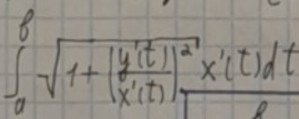 ∫ₐᵝ √(1 + (y'(t)/x'(t))²) x'(t) dt